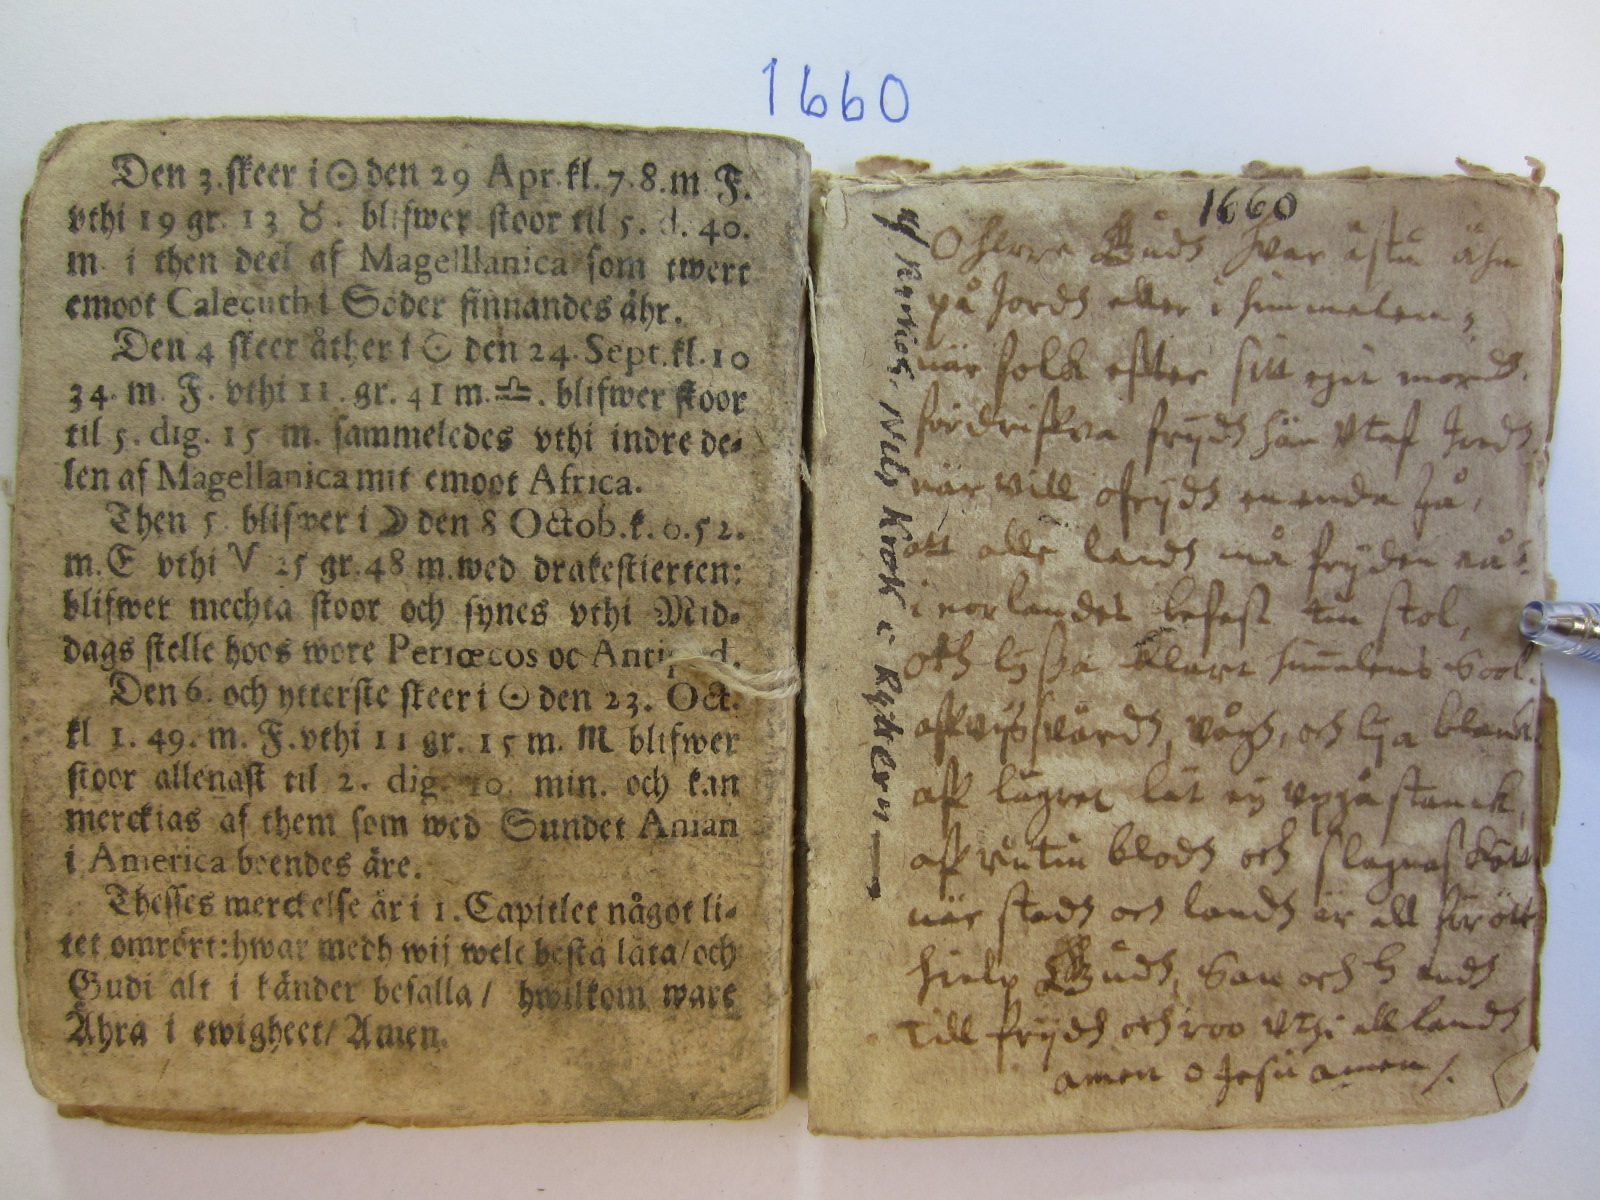 1660
Den 3. skeer i ☉ den 29 Apr. kl. 7. 8. m F.
vthi 19 gr. 13 ♉. blifwer stoor til 5. d. 40.
m i then deel af Magelllanica som twert
emoot Calecuth i Söder finnandes ähr.
Den 4 skeer åther i ☉ den 24. Sept. kl. 10
34. m. F. vthi 11. gr. 41 m. ♎. blifwer stoor
til 5. dig. 15 m. sammeledes vthi indre de-
len af Magellanica mit emoot Africa.
Then 5. blifwer i ☽ den 8 Octob. k. 6. 52.
m. E vthi ♈ 25 gr. 48 m. wed drakestierten:
blifwer mechta stoor och synes vthi Mid-
dags stelle hoos wore Periœcos oc
Den 6. och ytterste skeer i ☉ den 23. Oct.
kl 1. 49. m. F. vthi 11 gr. 15 m. ♏ blifwer
stoor allenast til 2. dig. 10 min. och kan
merckias af them som wed Sundet Anian
i America boendes äre.
Thesses merckelse är i 1. Capitlet något li-
tet omrört: hwar medh wij wele bestå låta/ och
Gudi alt i händer befalla/ hwilkom ware
Ähra i ewigheet/ Amen.
1660
O herre Gudh hvar ästu ähn
på Jordh eller i himmelen,
när folk efter sitt egit mordh
fördriffva frydh hän vtaf Jordh
när vill ofrydh en enda få,
att alle landh må fryden nå
i norlandet befest tin stol,
och lysa klart himelens Sool.
aff lägret lät ey vpgå stanck,
aff rutin blodh och slagnas kött
när stadh och landh är all förött
hielp Gudh, Son och h andh
till frydh och roo vthi all landh
amen o Jesu amen /.
Nils Krok i Ryttern